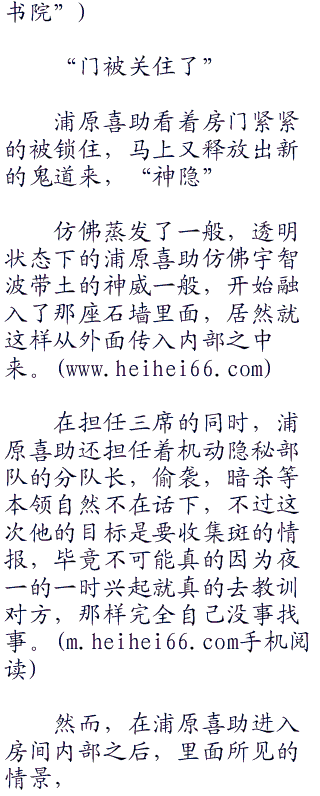 书院”)
“门被关住了”
浦原喜助看着房门紧紧
的被锁住，马上又释放出新
的鬼道来，“神隐”
仿佛蒸发了一般，透明
状态下的浦原喜助仿佛宇智
波带土的神威一般，开始融
入了那座石墙里面，居然就
这样从外面传入内部之中
来。(www.heihei66.com)
在担任三席的同时，浦
原喜助还担任着机动隐秘部
队的分队长，偷袭，暗杀等
本领自然不在话下，不过这
次他的目标是要收集斑的情
报，毕竟不可能真的因为夜
一的一时兴起就真的去教训
对方，那样完全自己没事找
事。(m.heihei66.com手机阅
读)
然而，在浦原喜助进入
房间内部之后，里面所见的
情景，